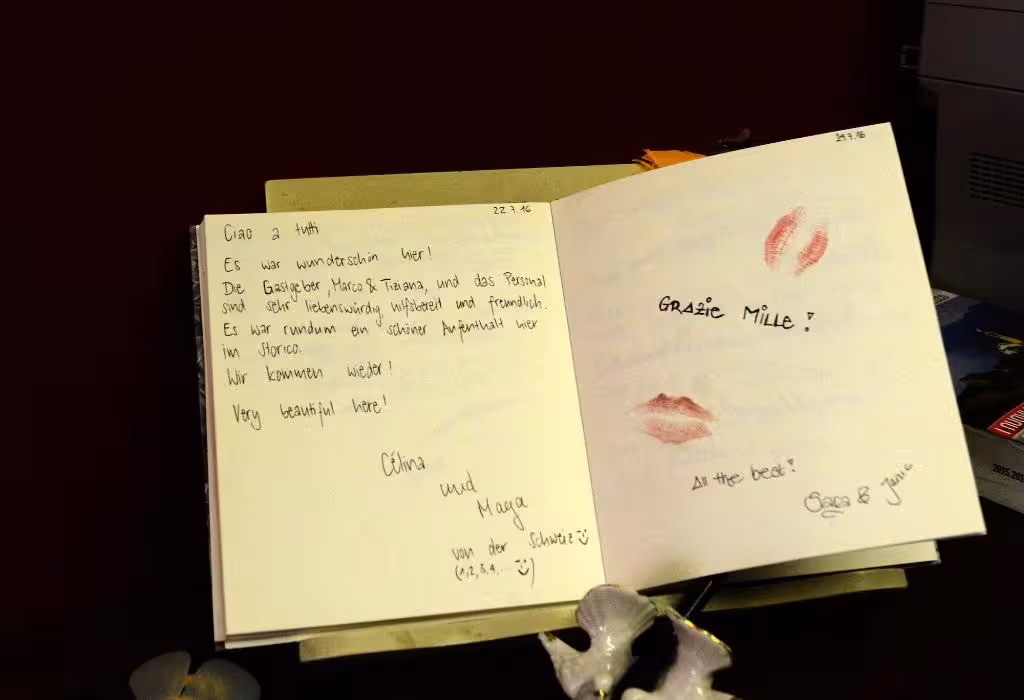 22.7.16
Ciao a tutti
Es war wunderschön hier!
Die Gastgeber, Marco & Tiziana, und das Personal
sind sehr liebenswürdig, hilfsbereit und freundlich.
Es war rundum ein schöner Aufenthalt hier
im Storico.
Wir kommen wieder!
Very beautiful here!
Célina
und
Maya
von der Schweiz
(1,2,3,4,...)
29.7.16
GRAZIE MILLE!
All the best!
Sara & Janic
2015.201